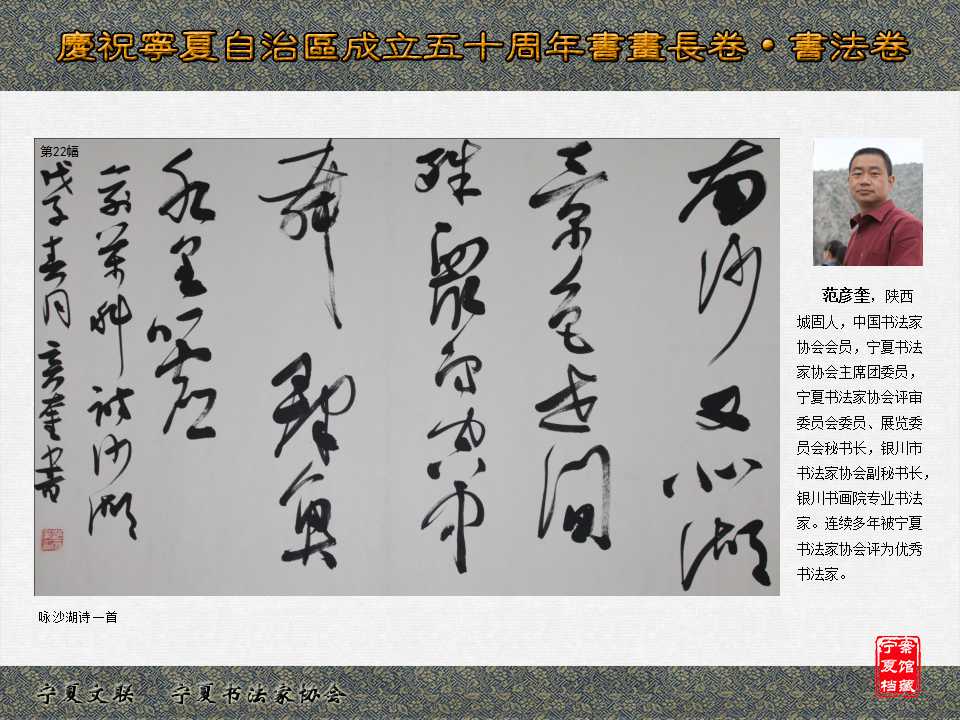 慶祝寧夏自治區成立五十周年書畫長卷·書法卷
第22幅
南沙又北湖
景色世间
殊眾鸟空中
舞群魚
水里
沙湖
戊子春月彦奎书
咏沙湖诗一首
范彦奎，陕西
城固人，中国书法家
协会会员，宁夏书法
家协会主席团委员，
宁夏书法家协会评审
委员会委员、展览委
员会秘书长，银川市
书法家协会副秘书长，
银川书画院专业书法
家。连续多年被宁夏
书法家协会评为优秀
书法家。
宁夏文联 宁夏书法家协会
宁夏档案馆藏